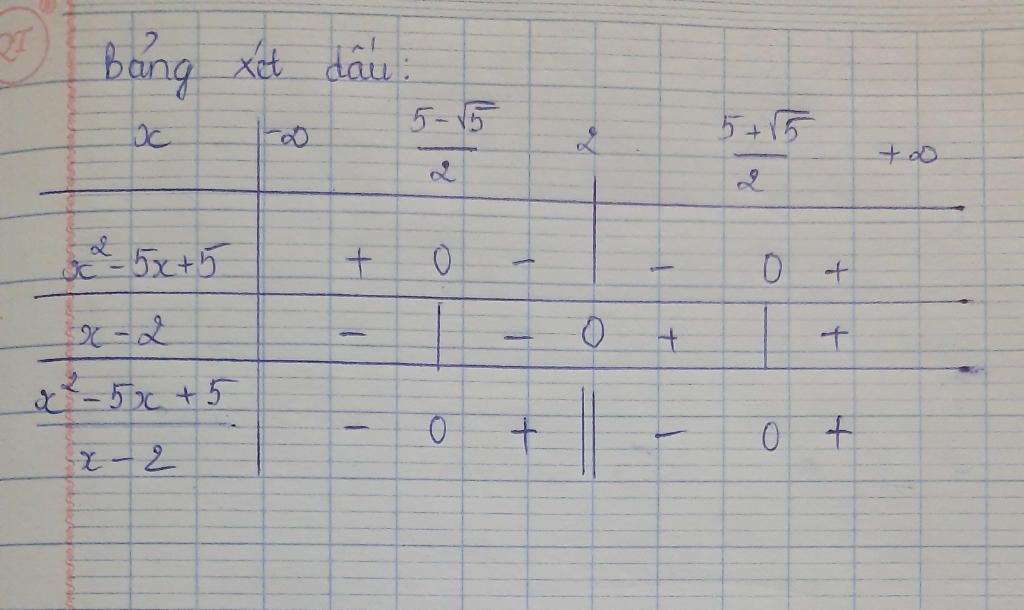 Bảng xét dấu:
x -∞ (5-√5)/2 2 (5+√5)/2 +∞
x²-5x+5 + 0 - | - 0 +
x-2 - | - 0 + | +
(x²-5x+5)/(x-2) - 0 + || - 0 +